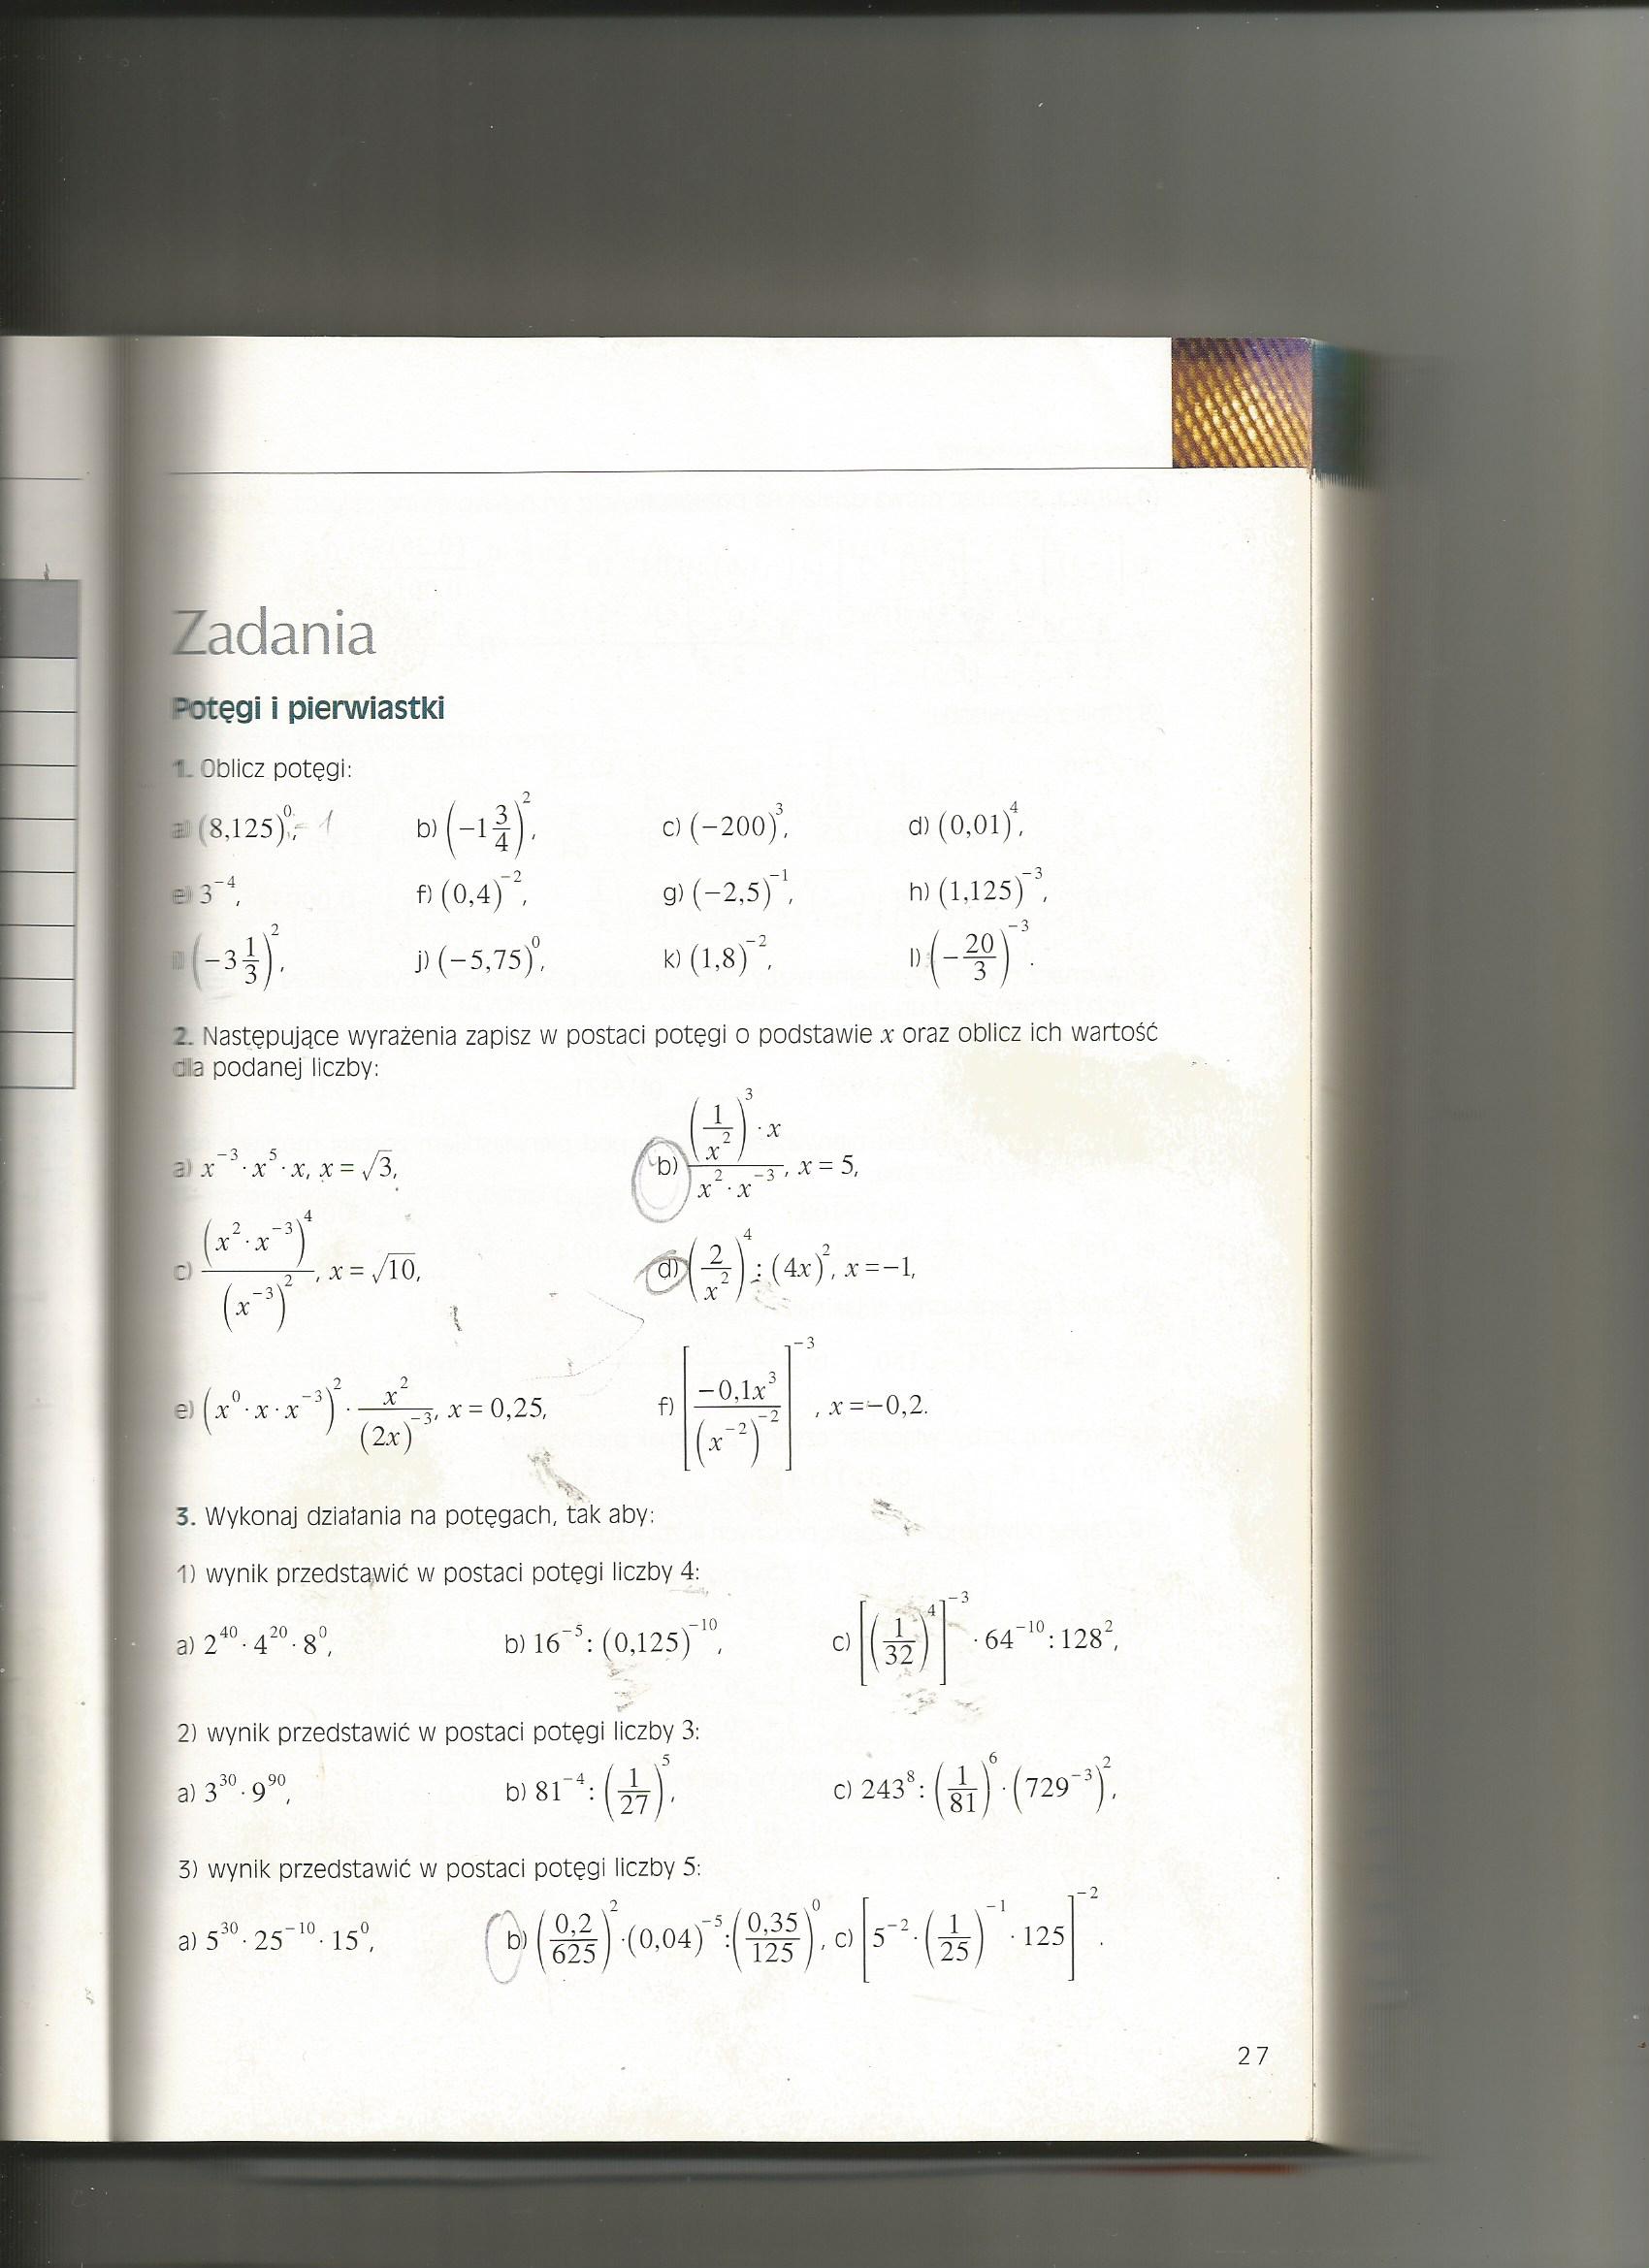 Zadania
Potęgi i pierwiastki
1. Oblicz potęgi:
a) (8,125)^0, = 1 b) (-1 3/4)^2, c) (-200)^3, d) (0,01)^4,
e) 3^-4, f) (0,4)^-2, g) (-2,5)^-1, h) (1,125)^-3,
i) (-3 1/3)^2, j) (-5,75)^0, k) (1,8)^-2, l) (-20/3)^-3.
2. Następujące wyrażenia zapisz w postaci potęgi o podstawie x oraz oblicz ich wartość
dla podanej liczby:
a) x^-3 · x^5 · x, x = √3, b) ((1/x^2)^3 · x)/(x^2 · x^-3), x = 5,
c) (x^2 · x^-3)^4/(x^-3)^2, x = √10, d) (2/x^2)^4 : (4x)^2, x = -1,
e) (x^0 · x · x^-3)^2 · x^2/(2x)^-3, x = 0,25, f) [-0,1x^3/(x^-2)^-2]^-3, x = -0,2.
3. Wykonaj działania na potęgach, tak aby:
1) wynik przedstawić w postaci potęgi liczby 4:
a) 2^40 · 4^20 · 8^0, b) 16^-5 : (0,125)^-10, c) [(1/32)^4]^-3 · 64^-10 : 128^2,
2) wynik przedstawić w postaci potęgi liczby 3:
a) 3^30 · 9^90, b) 81^-4 : (1/27)^5, c) 243^8 : (1/81)^6 · (729^-3)^2,
3) wynik przedstawić w postaci potęgi liczby 5:
a) 5^30 · 25^-10 · 15^0, b) (0,2/625)^2 · (0,04)^-5 : (0,35/125)^0, c) [5^-2 · (1/25)^-1 · 125]^-2.
27